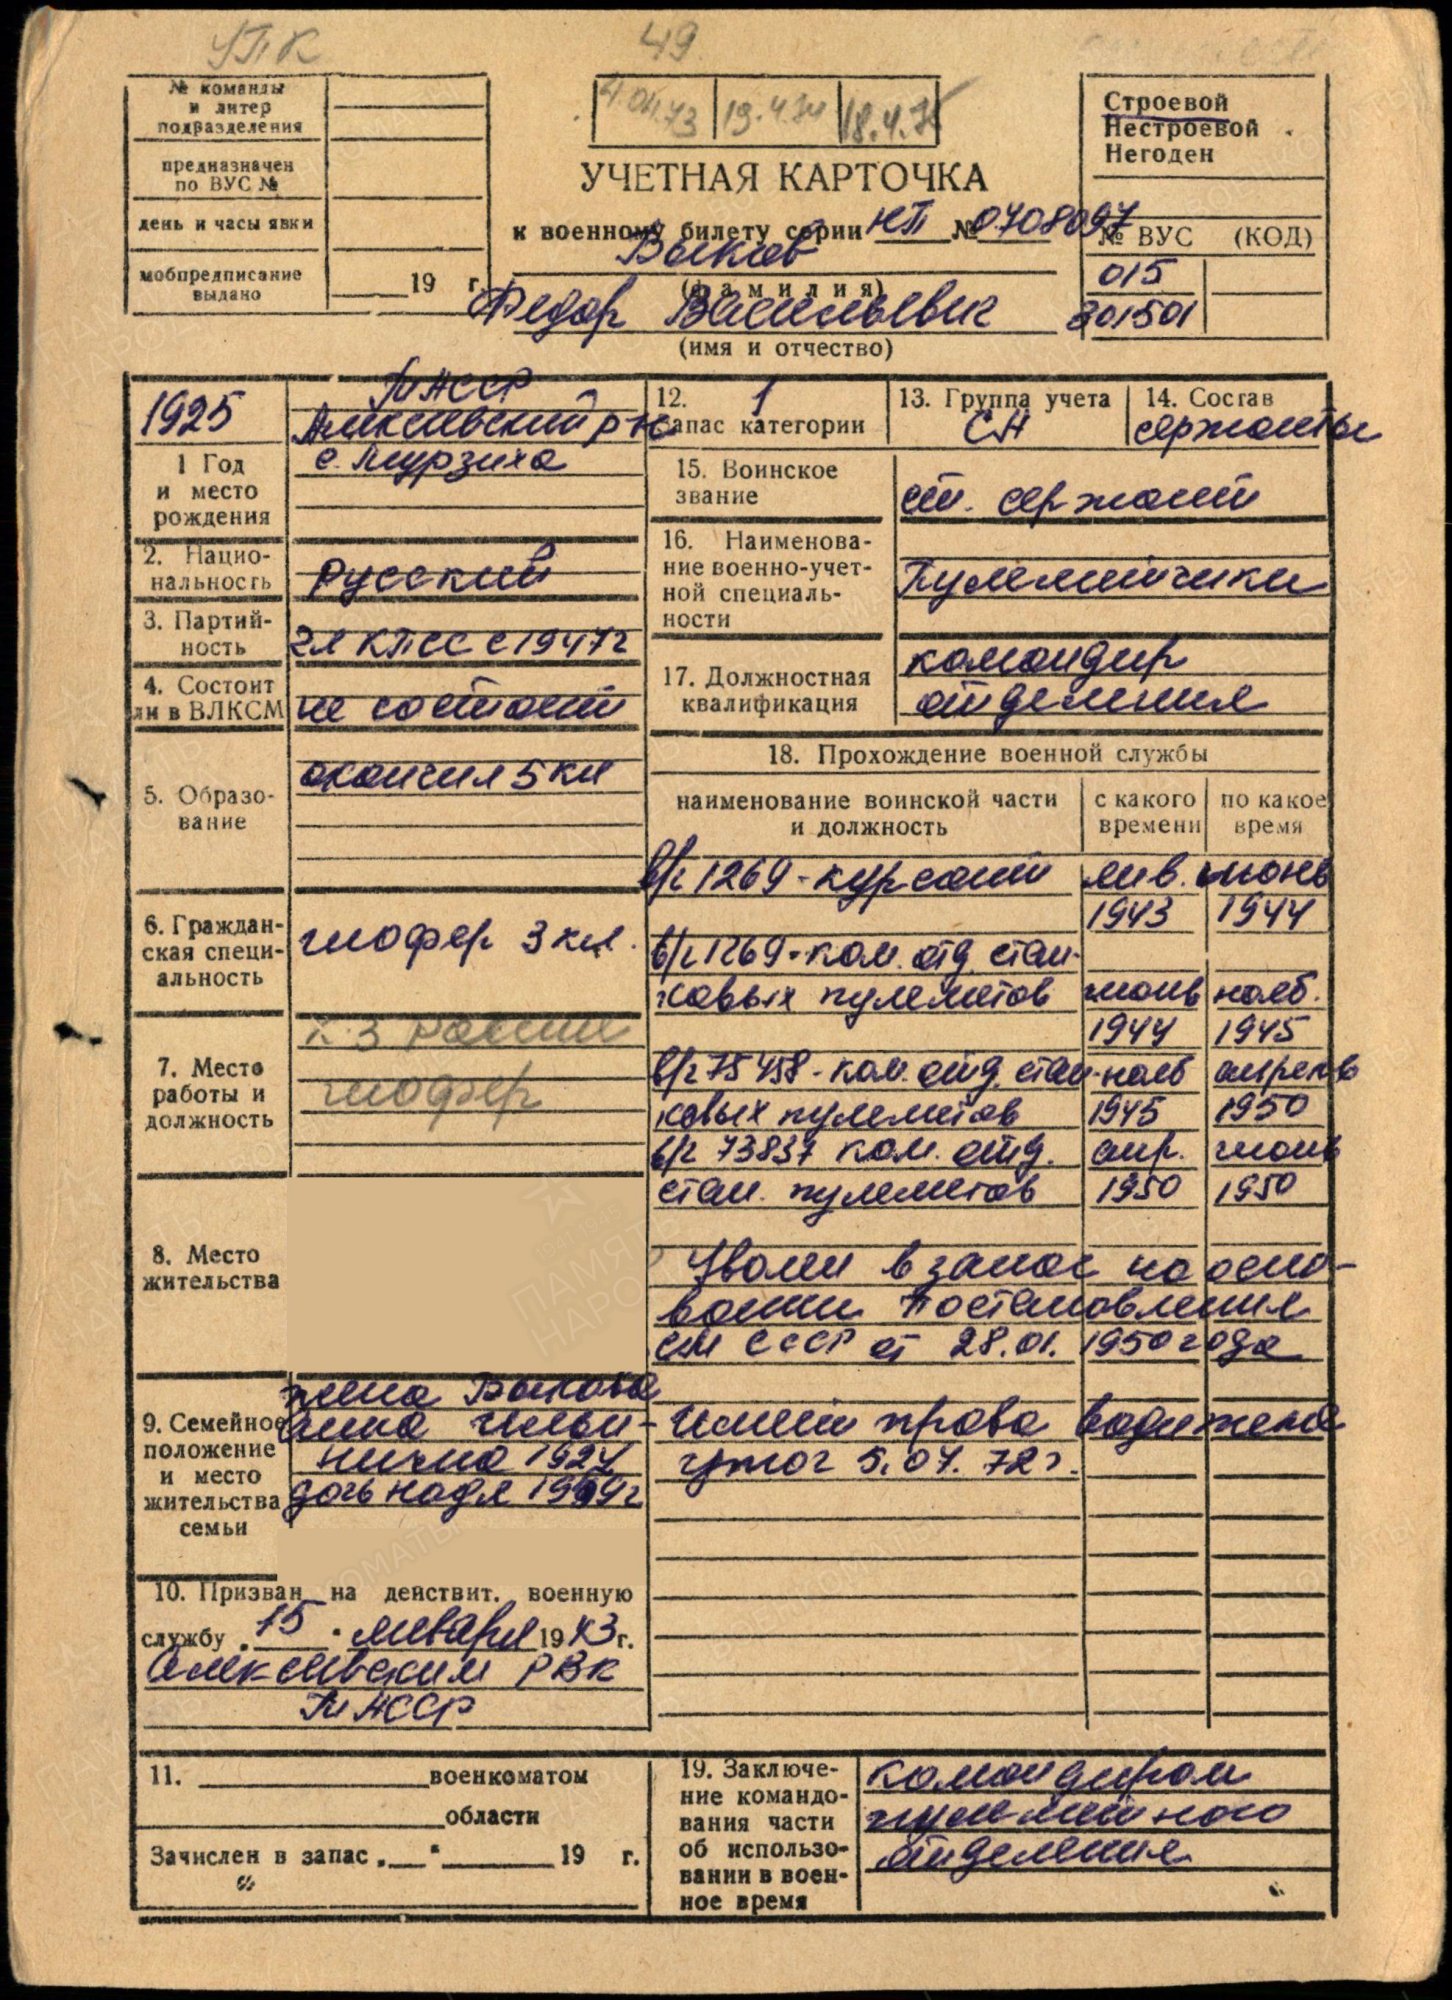 УПК
49
№ команды
и литер
подразделения
предназначен
по ВУС №
день и часы явки
мобпредписание
выдано
19 г.
4.04.73 19.4.74 18.4.75
УЧЕТНАЯ КАРТОЧКА
к военному билету серии НП № 0708097
Быков
(фамилия)
Федор Васильевич
(имя и отчество)
Строевой
Нестроевой
Негоден
№ ВУС (КОД)
015
301501
1925
1 Год
и место
рождения
ТАССР
Алексеевский р-н
с. Мурзиха
2. Нацио-
нальность
русский
3. Партий-
ность
чл КПСС с 1947г
4. Состоит
ли в ВЛКСМ
не состоит
5. Образо-
вание
окончил 5 кл
6. Граждан-
ская специ-
альность
шофер 3 кл.
7. Место
работы и
должность
к-з Россия
шофер
8. Место
жительства
9. Семейное
положение
и место
жительства
семьи
жена Быкова
Анна Ильи-
нична 1924
дочь Надя 1959г
10. Призван на действит. военную
службу "15" января 1943 г.
Алексеевским РВК
ТАССР
11. военкоматом
области
Зачислен в запас „ " 19 г.
12. 1
запас категории
13. Группа учета
СА
14. Состав
сержанты
15. Воинское
звание
ст. сержант
16. Наименова-
ние военно-учет-
ной специаль-
ности
Пулеметчики
17. Должностная
квалификация
командир
отделения
18. Прохождение военной службы
наименование воинской части
и должность
с какого
времени
по какое
время
в/ч 1269 - курсант янв. июнь
1943 1944
в/ч 1269 - ком. отд. стан-
ковых пулеметов июнь нояб.
1944 1945
в/ч 75458 - ком. отд. стан- нояб апрель
ковых пулеметов 1945 1950
в/ч 73837 ком. отд. апр. июнь
стан. пулеметов 1950 1950
Уволен в запас на осно-
вании Постановления
СМ СССР от 28.01. 1950 года
Имеет права водителя
5.04.72г.
19. Заключе-
ние командо-
вания части
об использо-
вании в воен-
ное время
командиром
пулеметного
отделения